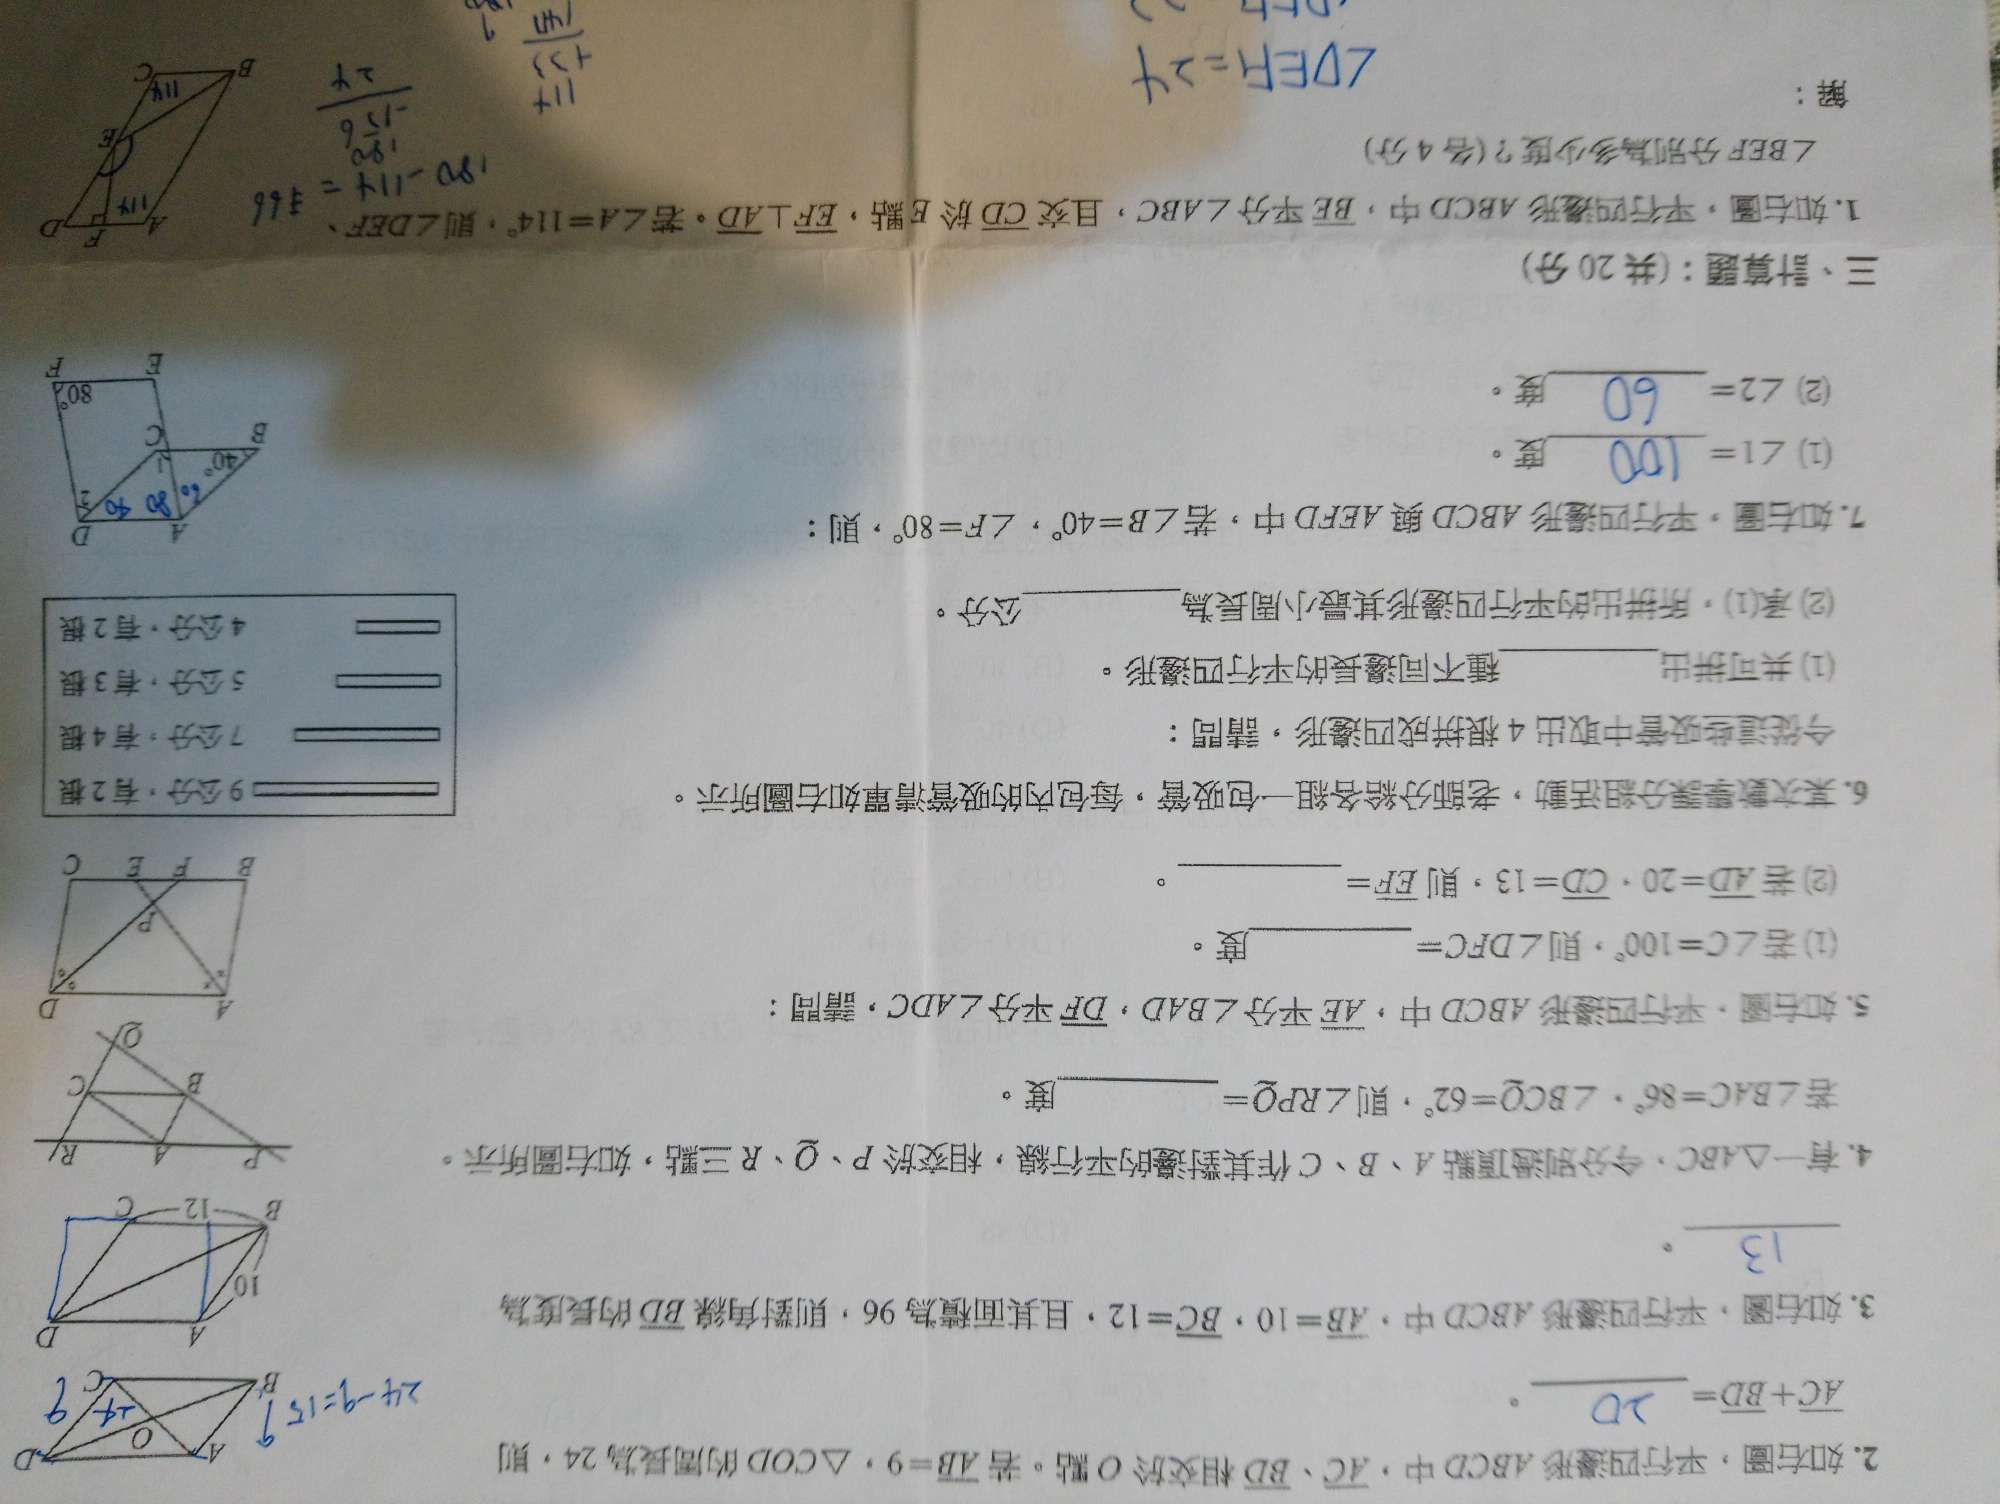 2. 如右圖，平行四邊形 ABCD 中，AC、BD 相交於 O 點。若 AB=9，△COD 的周長為 24，則
AC+BD= 20 。
24-9=15
9
A
D
O
24
9
B
C
3. 如右圖，平行四邊形 ABCD 中，AB=10，BC=12，且其面積為 96，則對角線 BD 的長度為
13 。
A
D
10
B
12
C
4. 有一△ABC，今分別過頂點 A、B、C 作其對邊的平行線，相交於 P、Q、R 三點，如右圖所示。
若∠BAC=86°，∠BCQ=62°，則∠RPQ= 度。
P
A
R
B
C
Q
5. 如右圖，平行四邊形 ABCD 中，AE 平分∠BAD，DF 平分∠ADC，請問：
(1) 若∠C=100°，則∠DFC= 度。
(2) 若 AD=20，CD=13，則 EF= 。
A
D
P
B
F
E
C
6. 某次數學課分組活動，老師分給各組一包吸管，每包內的吸管清單如右圖所示。
今從這些吸管中取出 4 根拼成四邊形，請問：
(1) 共可拼出 種不同邊長的平行四邊形。
(2) 承(1)，所拼出的平行四邊形其最小周長為 公分。
9 公分，有 2 根
7 公分，有 4 根
5 公分，有 3 根
4 公分，有 2 根
7. 如右圖，平行四邊形 ABCD 與 AEFD 中，若∠B=40°，∠F=80°，則：
(1) ∠1= 100 度。
(2) ∠2= 60 度。
A
D
60
80
40
2
40°
1
B
C
80°
E
F
三、計算題：(共 20 分)
1. 如右圖，平行四邊形 ABCD 中，BE 平分∠ABC，且交 CD 於 E 點，EF⊥AD。若∠A=114°，則∠DEF、
∠BEF 分別為多少度？(各 4 分)
解：
∠DEF=24
180-114=66
180
-156
24
114
+33
A
F
D
114
E
B
114
C